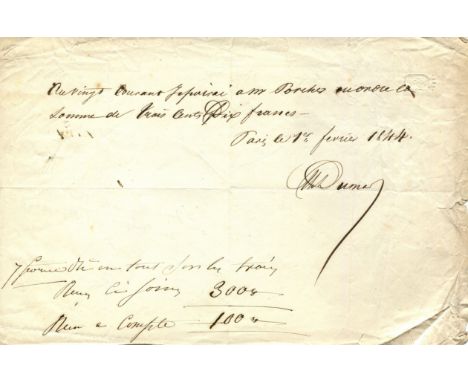 Au vingt Courant je paierai a mr Porcher ou ordre la
Somme de trois Cents Dix francs
Paris le 1er fevrier 1844.
Al Dumas
7 fevrier en tout sur les trois
300
Reçu a Compte 100